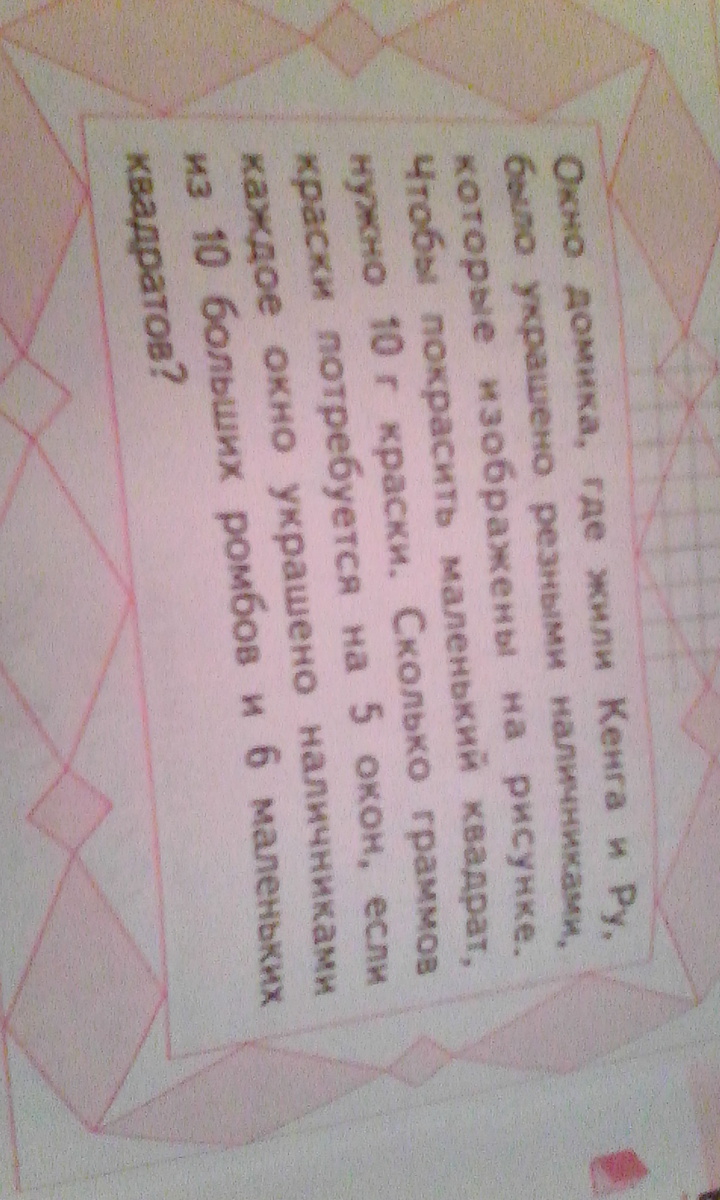 Окно домика, где жили Кенга и Ру,
было украшено резными наличниками,
которые изображены на рисунке.
Чтобы покрасить маленький квадрат,
нужно 10 г краски. Сколько граммов
краски потребуется на 5 окон, если
каждое окно украшено наличниками
из 10 больших ромбов и 6 маленьких
квадратов?